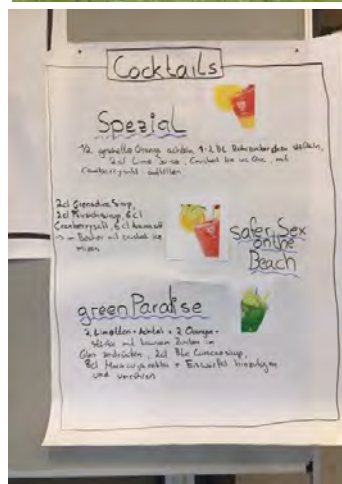 Cocktails
Spezial
1/2 geschälte Orange achteln, 1-2 BL Rohrohrzucker
2cl Lime Juice, Crushed Ice ins Glas, mit
Cranberrysaft auffüllen
2cl Grenadine Sirup,
2cl Pfirsichsirup, 6cl
Cranberrysaft, 6cl Ananassaft
→ im Becher mit crushed ice
mixen
safer Sex
on the
Beach
green Paradise
2 Limetten-Achtel + 2 Orangen-
stücke mit braunem Zucker im
Glas zerdrücken, 2cl Blue Curacaosirup,
8cl Maracujanektar + Eiswürfel hinzufügen
und verrühren